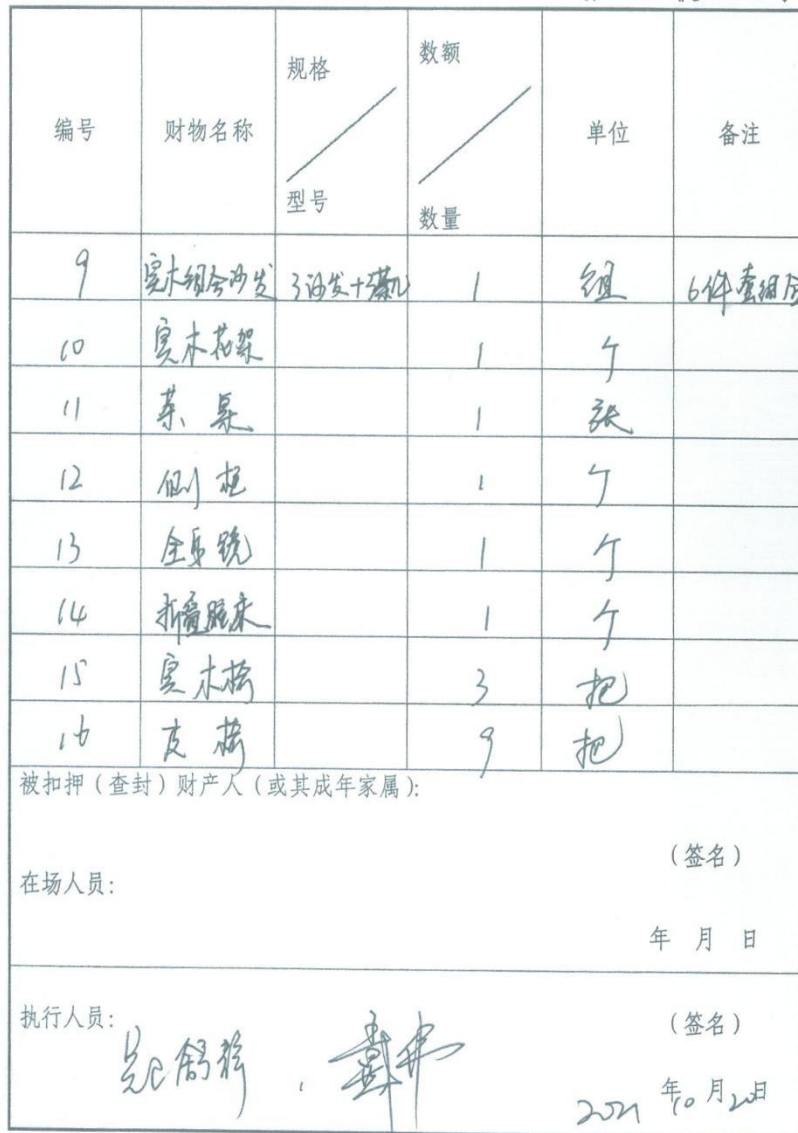 编号 财物名称 规格/型号 数额/数量 单位 备注
9 实木组合沙发 3沙发+3茶几 1 组 6件套组合
10 实木花架 1 个
11 茶桌 1 张
12 侧柜 1 个
13 全身镜 1 个
14 折叠躺床 1 个
15 实木椅 3 把
16 皮椅 9 把
被扣押（查封）财产人（或其成年家属）：
（签名）
在场人员：
年 月 日
执行人员：
（签名）
2021年10月20日